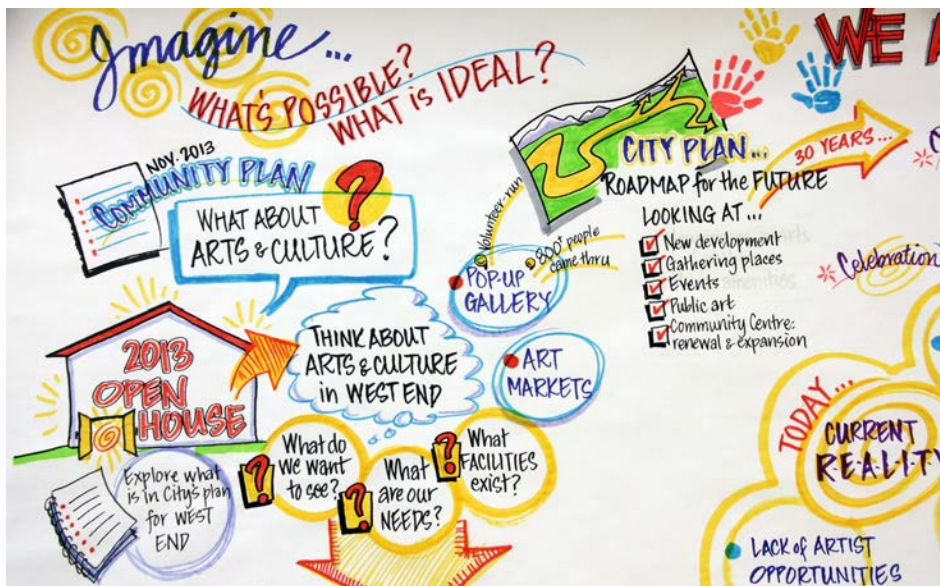 Imagine...
WHAT'S POSSIBLE?
WHAT is IDEAL?
WE A
NOV. 2013
COMMUNITY PLAN
WHAT ABOUT
ARTS & CULTURE?
?
2013
OPEN
HOUSE
THINK ABOUT
ARTS & CULTURE
in WEST END
Explore what
is in City's plan
for WEST
END
?
What do
we want
to see?
?
What
are our
NEEDS?
?
What
FACILITIES
exist?
Volunteer-run
800+ people
came thru
POP-UP
GALLERY
ART
MARKETS
CITY PLAN...
ROADMAP for the FUTURE
LOOKING AT...
New development
Gathering places
Events
Public art
Community Centre:
renewal & expansion
30 YEARS...
Celebration
TODAY...
CURRENT
R.E.A.L.I.T.Y
LACK of ARTIST
OPPORTUNITIES